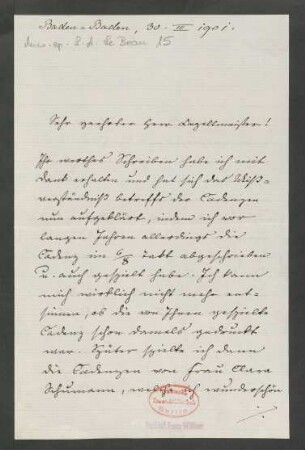 Baden-Baden, 30. III 1901.
Mus. ep. L. A. Le Beau 15
Sehr geehrter Herr Capellmeister!
Ihr werthes Schreiben habe ich mit
Dank erhalten und hat sich das Miß-
verständniß betreffs der Cadenzen
nun aufgeklärt, indem ich vor
langen Jahren allerdings die
Cadenz im 6/8 takt abgeschrieben
u. auch gespielt habe. Ich kann
mich wirklich nicht mehr ent-
sinnen, ob die von Ihnen gespielte
Cadenz schon damals gedruckt
war. Später spielte ich dann
die Cadenzen von Frau Clara
Schumann, welche ich wunderschön
Berlin
Nachlaß Franz Wüllner